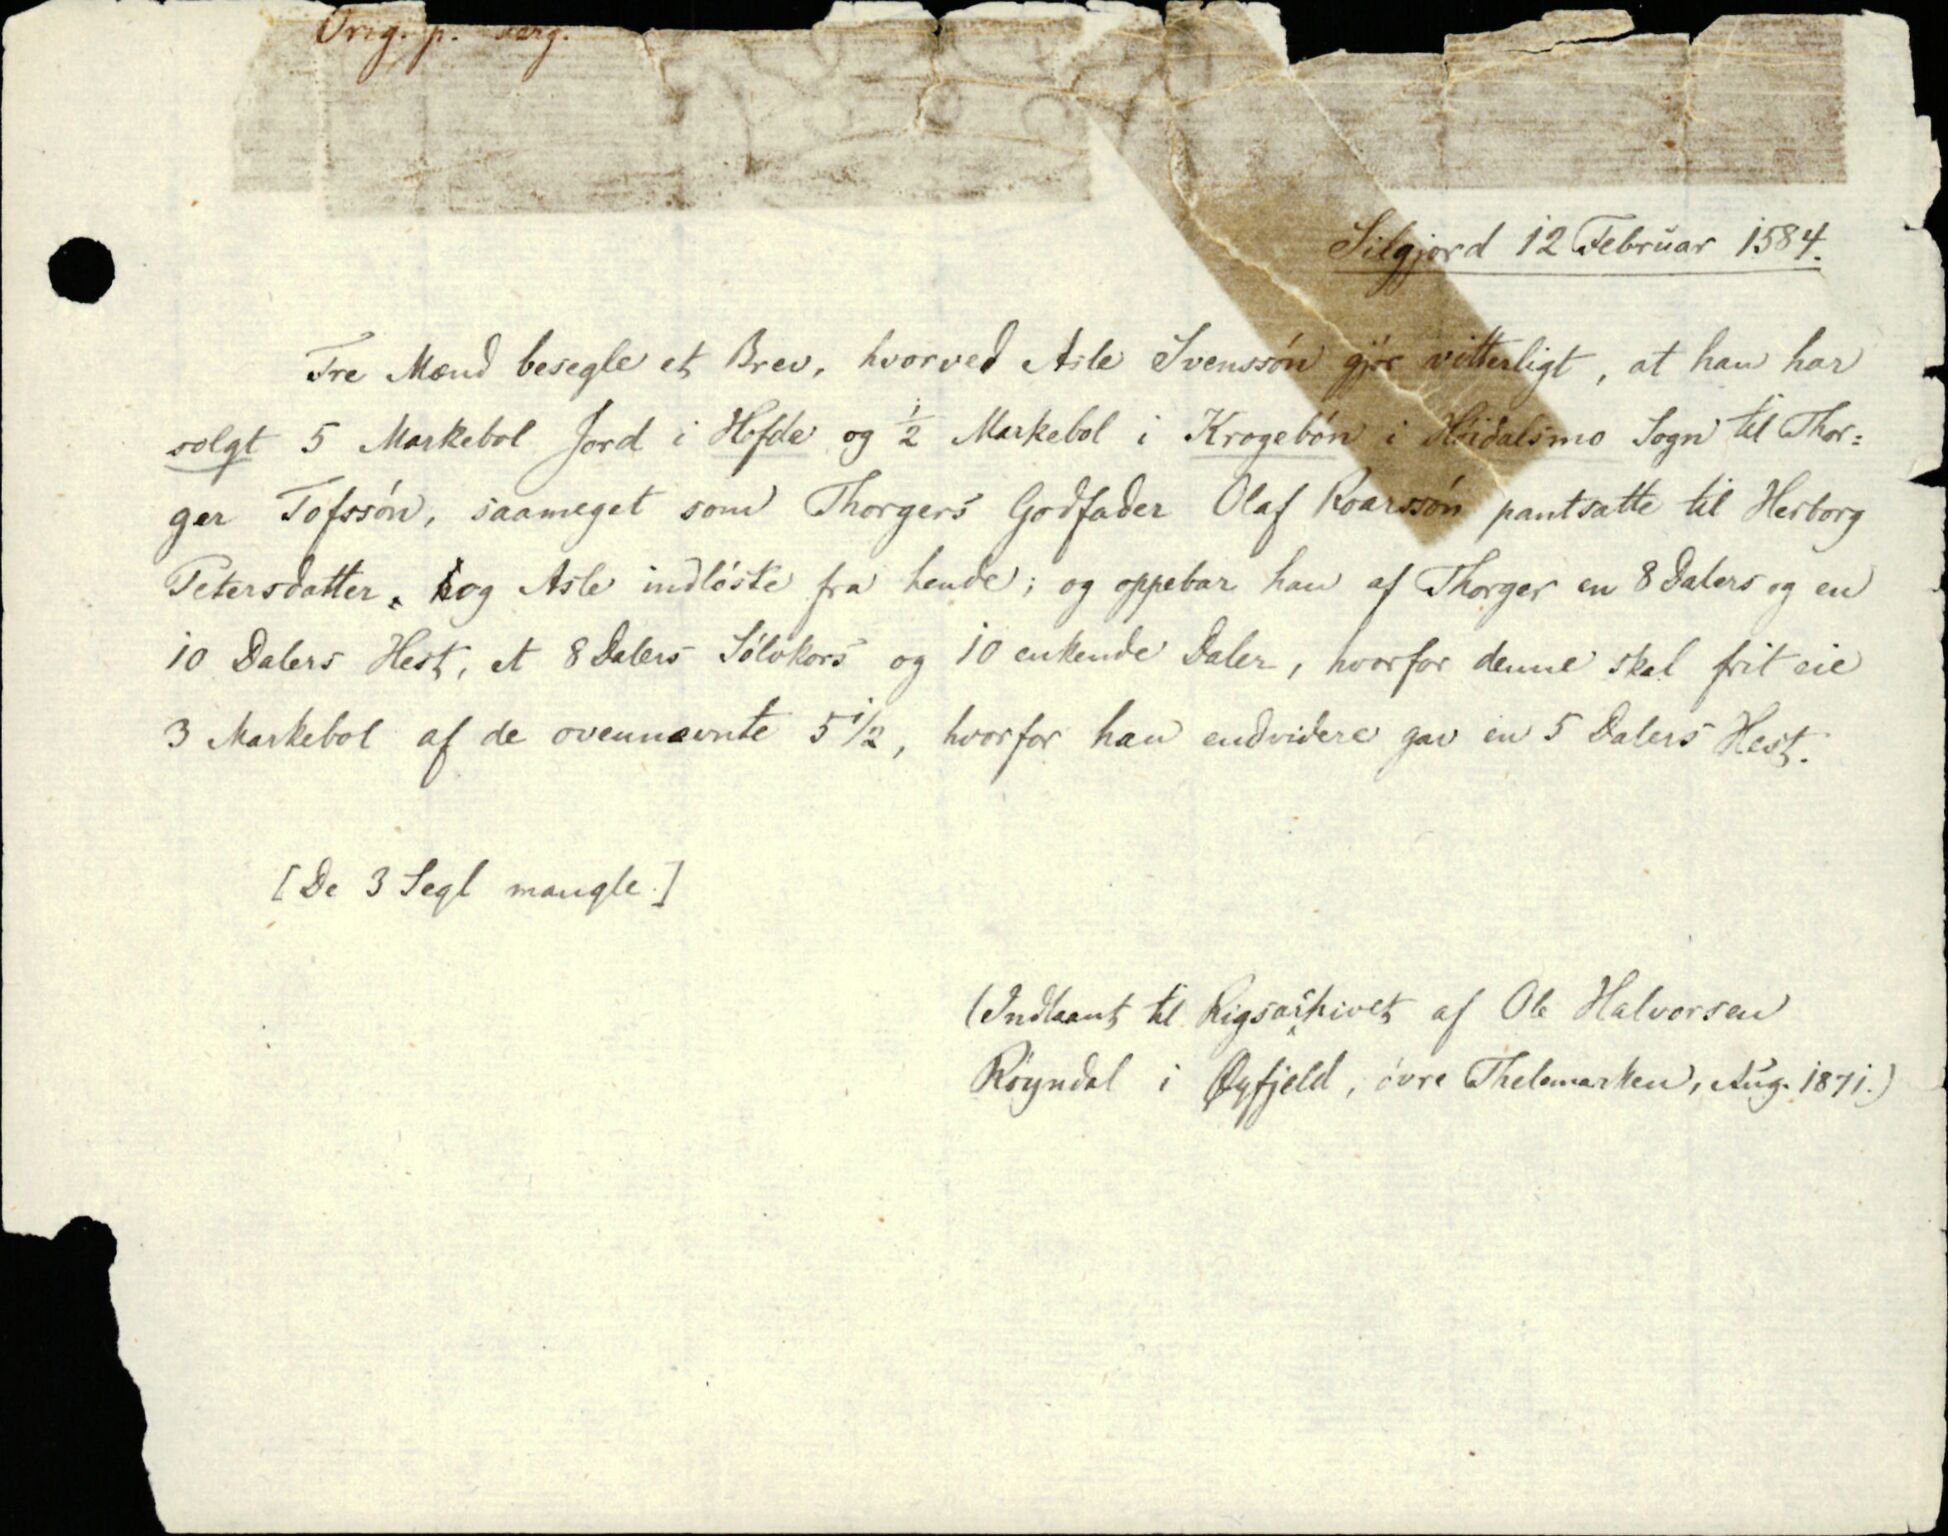 Orig. p. Perg.
Silgjord 12 Februar 1584.
Tre Mænd besegle et Brev, hvorved Asle Svenssøn gjør vitterligt, at han har
solgt 5 Markebol Jord i Hofde og ½ Markebol i Krogebøn i Høidalsmo Sogn til Thor=
ger Tofssøn, saameget som Thorgers Godfader Olaf Roarssøn pantsatte til Herborg
Petersdatter, og Asle indløste fra hende; og oppebar han af Thorger en 8 Dalers og en
10 Dalers Hest, et 8 Dalers Sølvkors og 10 enkende Daler, hvorfor denne skal frit eie
3 Markebol af de ovennævnte 5 1/2, hvorfor han endvidere gav en 5 Dalers Hest.
[De 3 Segl mangle.]
(Indlaant til Rigsarkivet af Ole Halvorsen
Røyndal i Øyfjeld, øvre Thelemarken, Aug. 1871.)